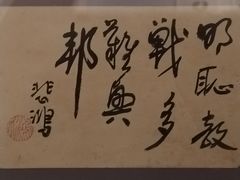 明恥教
戰多
難興
邦
悲鴻